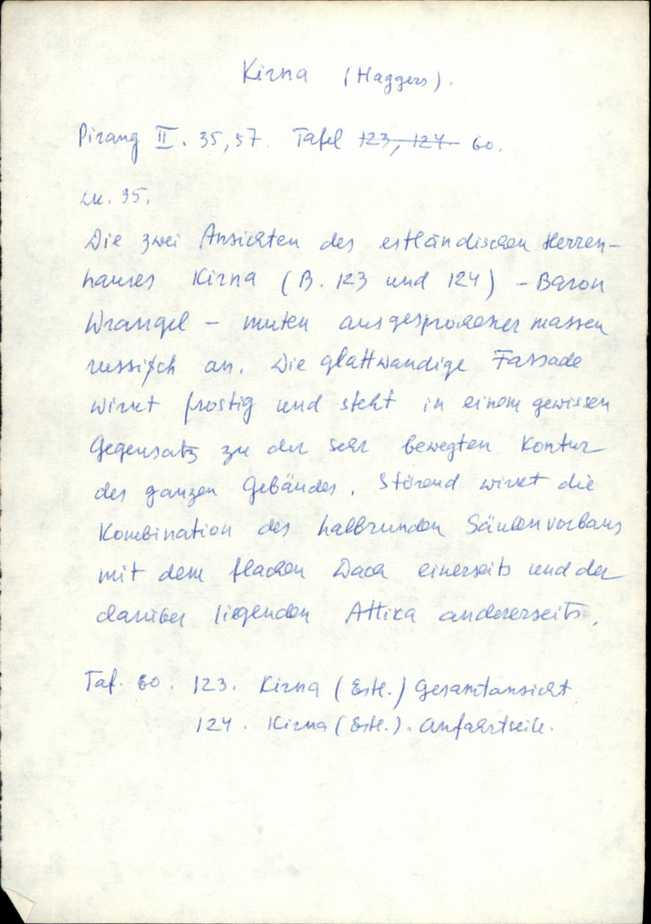 Kirna (Haggers).
Pirang II. 35, 57. Tafel ~~123, 124~~ 60.
35.
Die zwei Ansichten des estländischen Herren-
hauses Kirna (B. 123 und 124) - Baron
Wrangel - muten ausgesprochener massen
russisch an. Die glattwandige Fassade
wirkt frostig und steht in einem gewissen
Gegensatz zu der sehr bewegten Kontur
des ganzen Gebäudes. Störend wirkt die
Kombination des halbrunden Säulenvorbaus
mit dem flachen Dach einerseits und der
darüber liegenden Attika andererseits.
Taf. 60. 123. Kirna (Estl.) Gesamtansicht
124. Kirna (Estl.). Anfahrtseite.